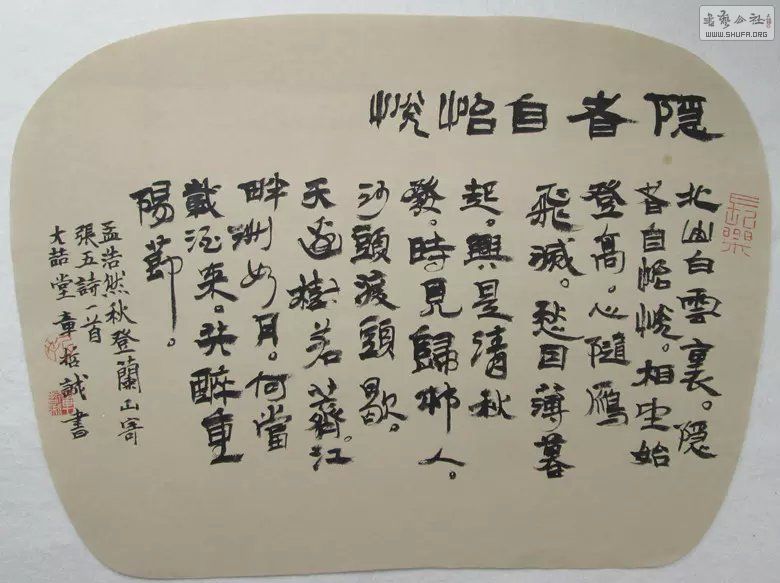 隐者自怡悦
北山白雲裏。隐
者自怡悦。相望始
登高。心隨鴈
飛滅。愁因薄暮
起。興是清秋
發。時見歸邨人。
沙頭渡頭歇。
天邊樹若薺。江
畔洲如月。何當
載酒来。共醉重
陽節。
孟浩然秋登蘭山寄
張五詩一首
大喆堂童誠書
長樂
書藝公社
WWW.SHUFA.ORG